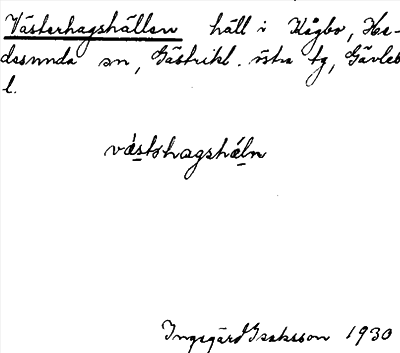 Västerhagshällen häll i Kågbo, He-
desunda sn, Gästrikl. östra tg, Gävleb
l.
västshagshäln
Ingegärd Isaksson 1930